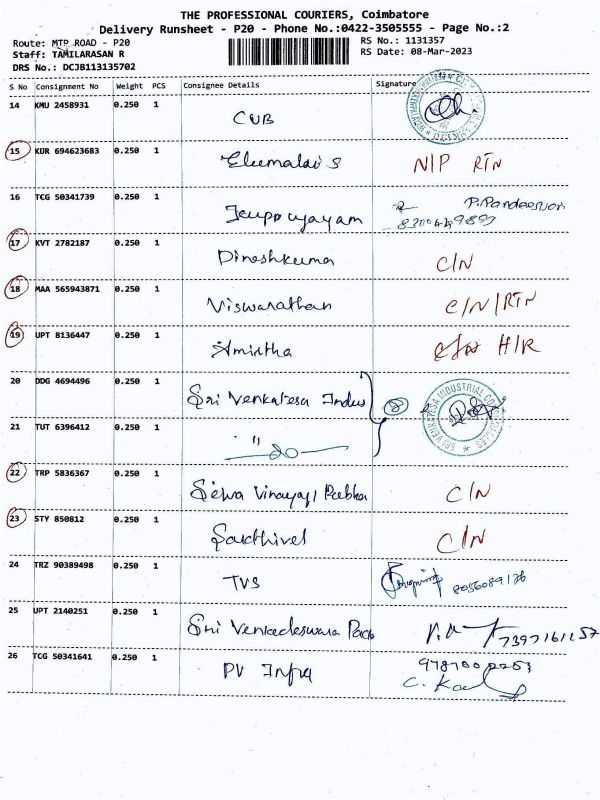 THE PROFESSIONAL COURIERS, Coimbatore
Delivery Runsheet - P20 - Phone No.:0422-3505555 - Page No.:2
Route: MTP ROAD - P20
RS No.: 1131357
Staff: TAMILARASAN R
RS Date: 08-Mar-2023
DRS No.: DCJB113135702
S No Consignment No Weight PCS Consignee Details Signature
14 KMU 2458931 0.250 1 CUB
15 KUR 694623683 0.250 1 Elumalai S N/P RTN
16 TCG 50341739 0.250 1 P. Pandeeswari
17 KVT 2782187 0.250 1 Dineshkumar C/N
18 MAA 565943871 0.250 1 Viswanathan C/N/RTN
19 UPT 8136447 0.250 1 Amirtha H/R
20 DDG 4694496 0.250 1 Sri Venkatesa Indus
21 TUT 6396412 0.250 1 " do
22 TRP 5836367 0.250 1 C/N
23 STY 850812 0.250 1 Sakthivel C/N
24 TRZ 90389498 0.250 1 TVS 8056089126
25 UPT 2140251 0.250 1 Sri Venkadeswara Pack 7397161157
26 TCG 50341641 0.250 1 PV Infra